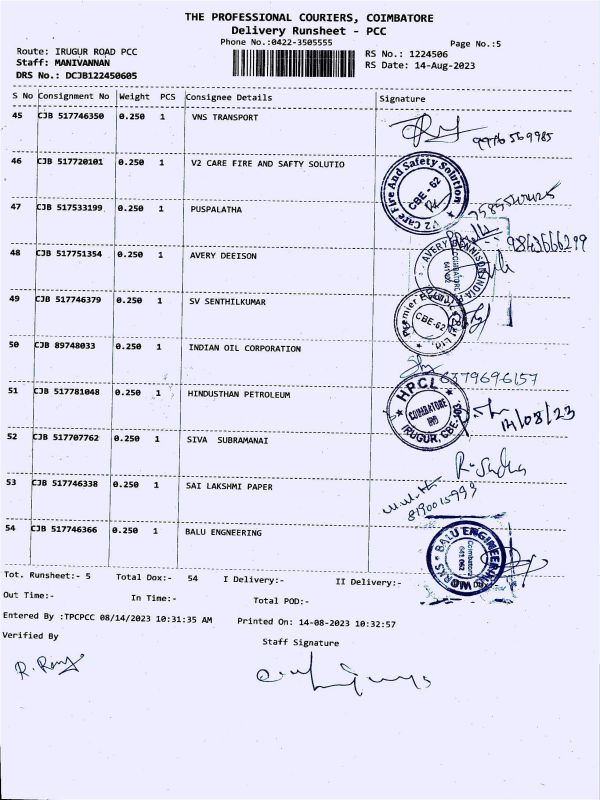 THE PROFESSIONAL COURIERS, COIMBATORE
Delivery Runsheet - PCC
Phone No.:0422-3505555
Page No.:5
Route: IRUGUR ROAD PCC
RS No.: 1224506
Staff: MANIVANNAN
RS Date: 14-Aug-2023
DRS No.: DCJB122450605
S No Consignment No Weight PCS Consignee Details Signature
45 CJB 517746350 0.250 1 VNS TRANSPORT
9976569985
46 CJB 517720101 0.250 1 V2 CARE FIRE AND SAFTY SOLUTIO
V2 Care Fire And Safety Solution
CBE - 62
47 CJB 517533199 0.250 1 PUSPALATHA
9843666299
48 CJB 517751354 0.250 1 AVERY DEEISON
49 CJB 517746379 0.250 1 SV SENTHILKUMAR
CBE-62
50 CJB 89748033 0.250 1 INDIAN OIL CORPORATION
6379696157
51 CJB 517781048 0.250 1 HINDUSTHAN PETROLEUM
HPCL
COIMBATORE
IRUGUR, CBE-103.
14/08/23
52 CJB 517707762 0.250 1 SIVA SUBRAMANAI
53 CJB 517746338 0.250 1 SAI LAKSHMI PAPER
8190015993
54 CJB 517746366 0.250 1 BALU ENGNEERING
BALU ENGINEERING WORKS
Coimbatore
641 062
Tot. Runsheet:- 5 Total Dox:- 54 I Delivery:- II Delivery:-
Out Time:- In Time:- Total POD:-
Entered By :TPCPCC 08/14/2023 10:31:35 AM Printed On: 14-08-2023 10:32:57
Verified By
Staff Signature